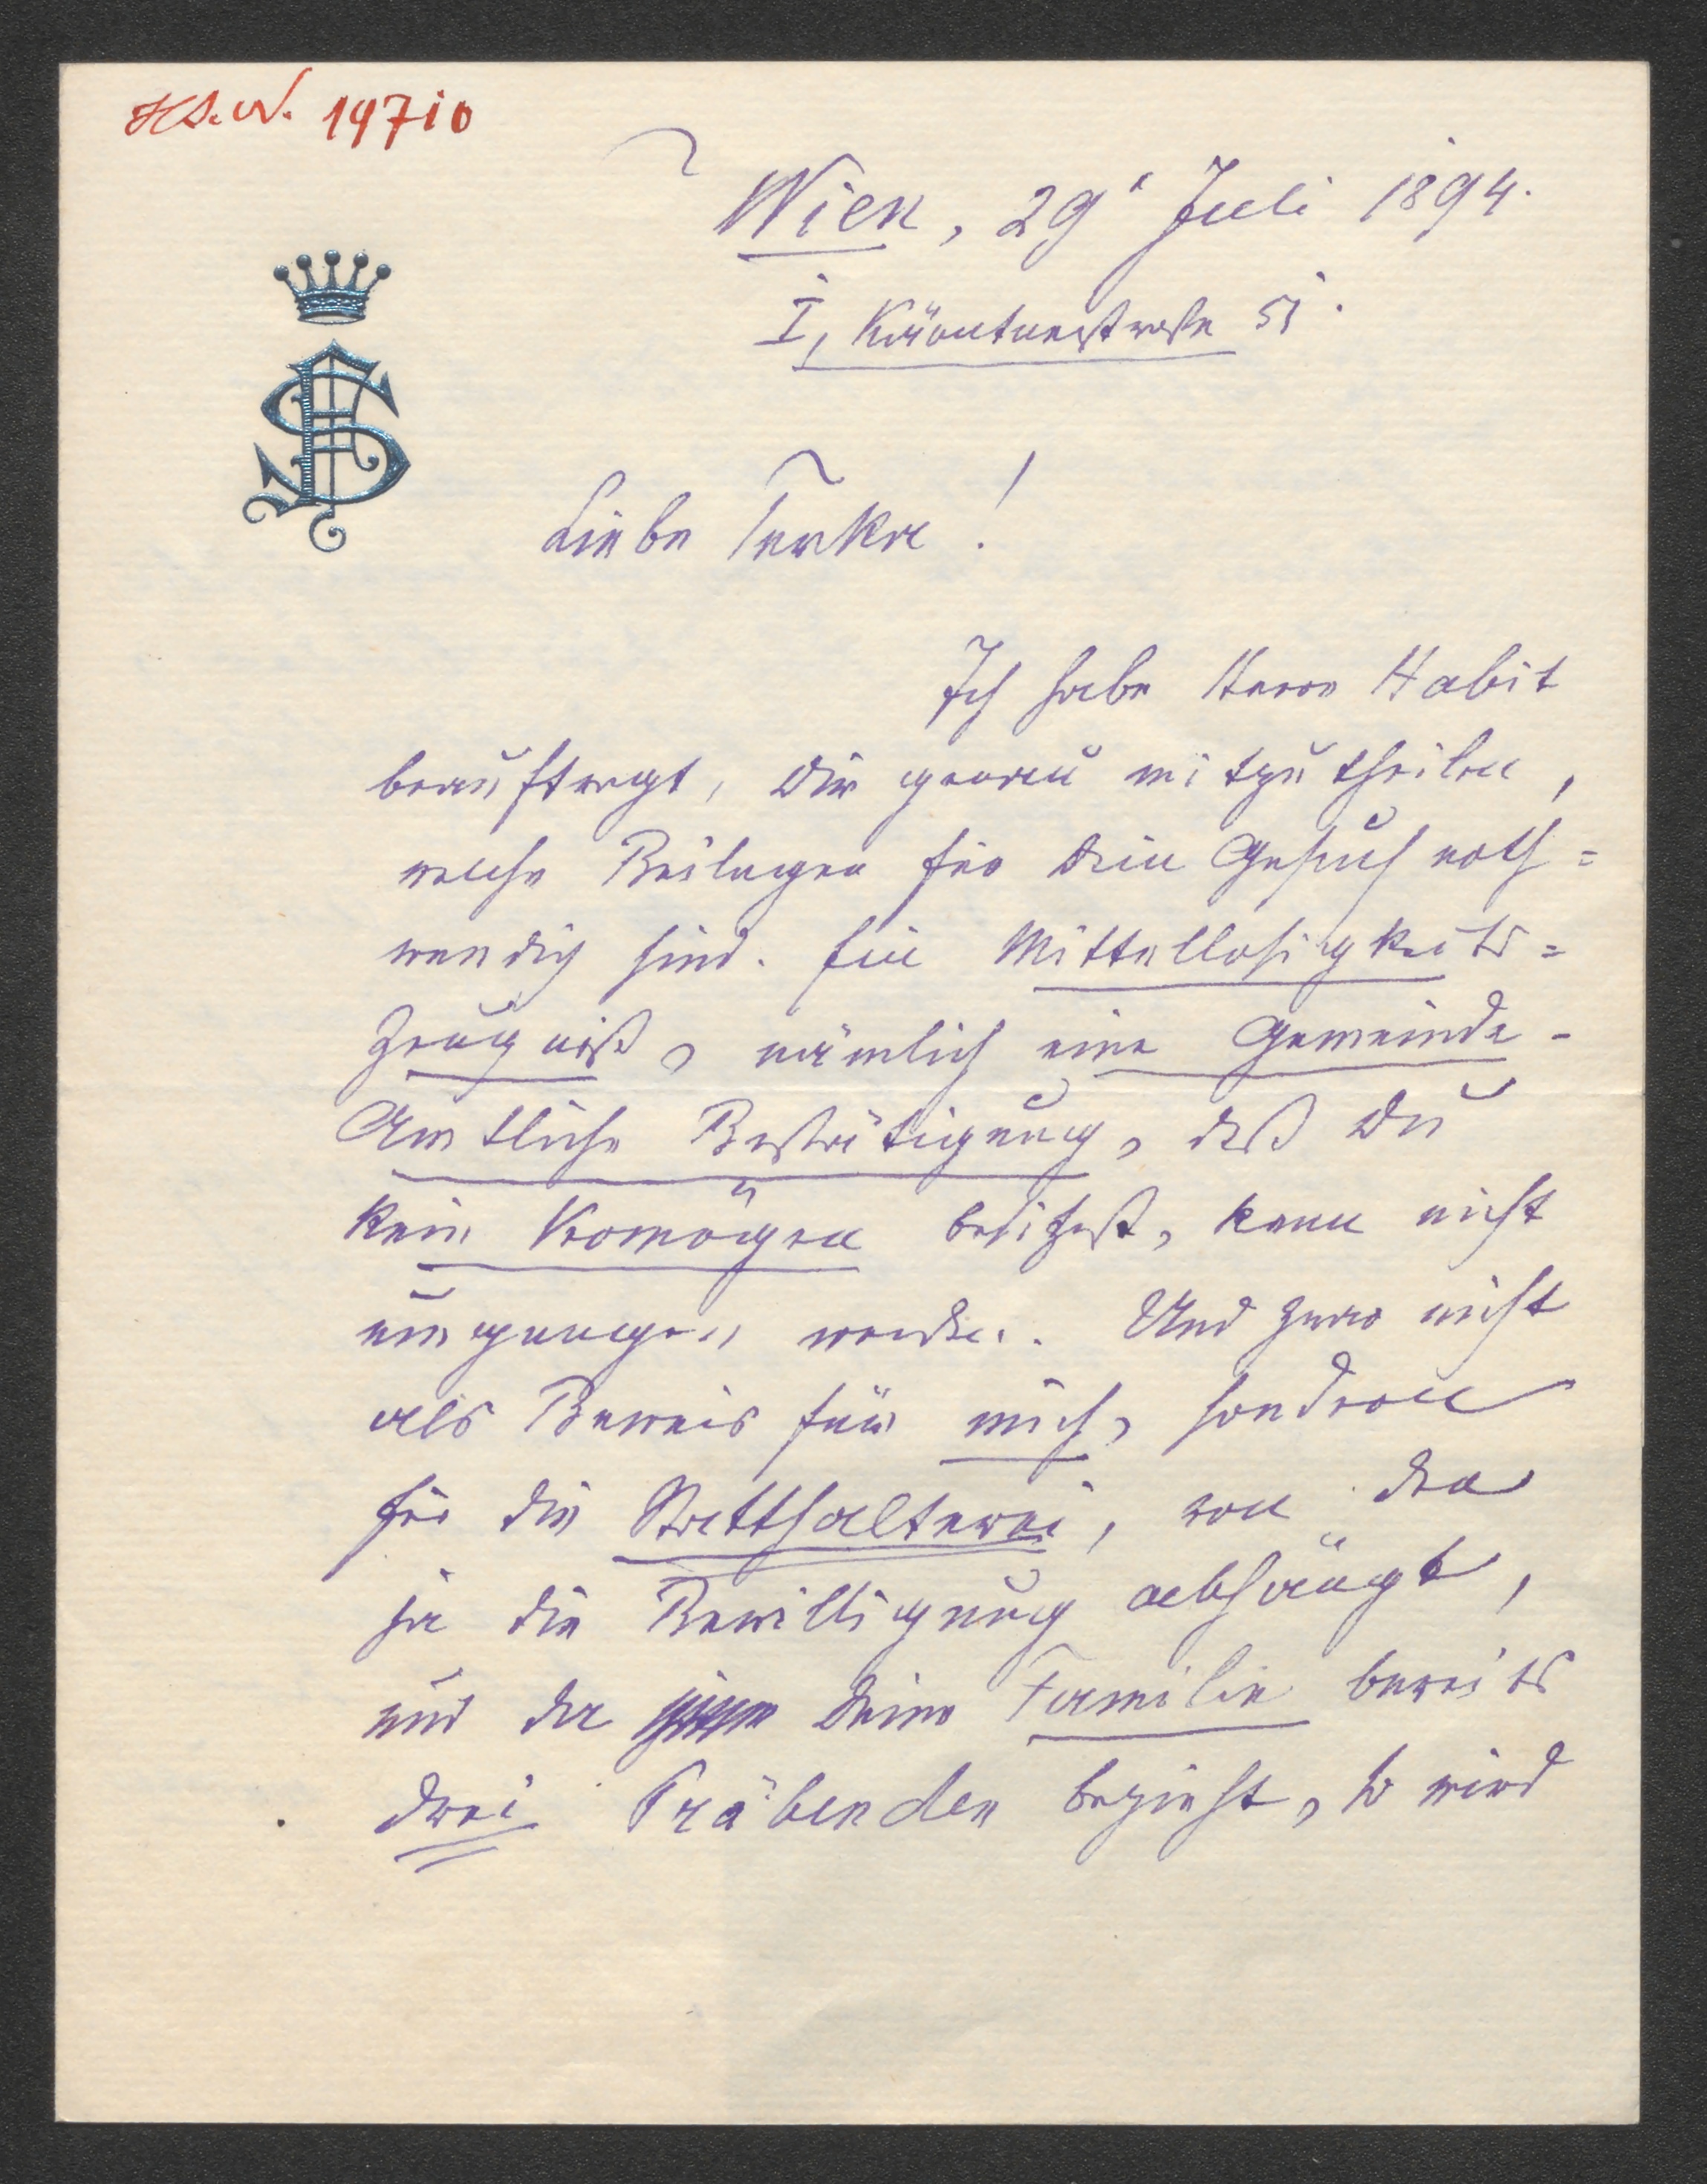 HS.N. 19710
Wien, 29' Juli 1894.
I, Kärntnerstraße 51.
FS
Liebe Terka!
Ich habe Herrn Habit
beauftragt, Dir genau mitzutheilen,
welche Beilagen für Dein Gesuch noth=
wendig sind. Ein Mittellosigkeits=
Zeugniß, nämlich eine Gemeinde-
Amtliche Bestätigung, daß Du
kein Vermögen besitzest, kann nicht
umgangen werden. Und zwar nicht
als Beweis für mich, sondern
für die Statthalterei, von der
ja die Bewilligung abhängt,
und da Deine Familie bereits
drei Präbenden bezieht, so wird